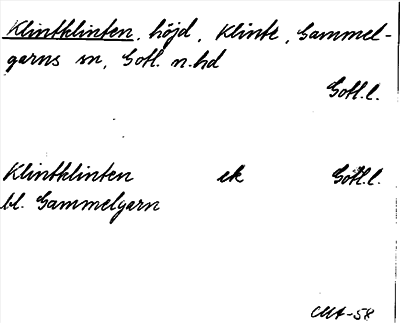 Klintklinten, höjd, Klinte, Gammel-
garns sn, Gotl. n. hd
Gotl. l.
Klintklinten ek Gotl. l.
bl. Gammelgarn
CMA-58